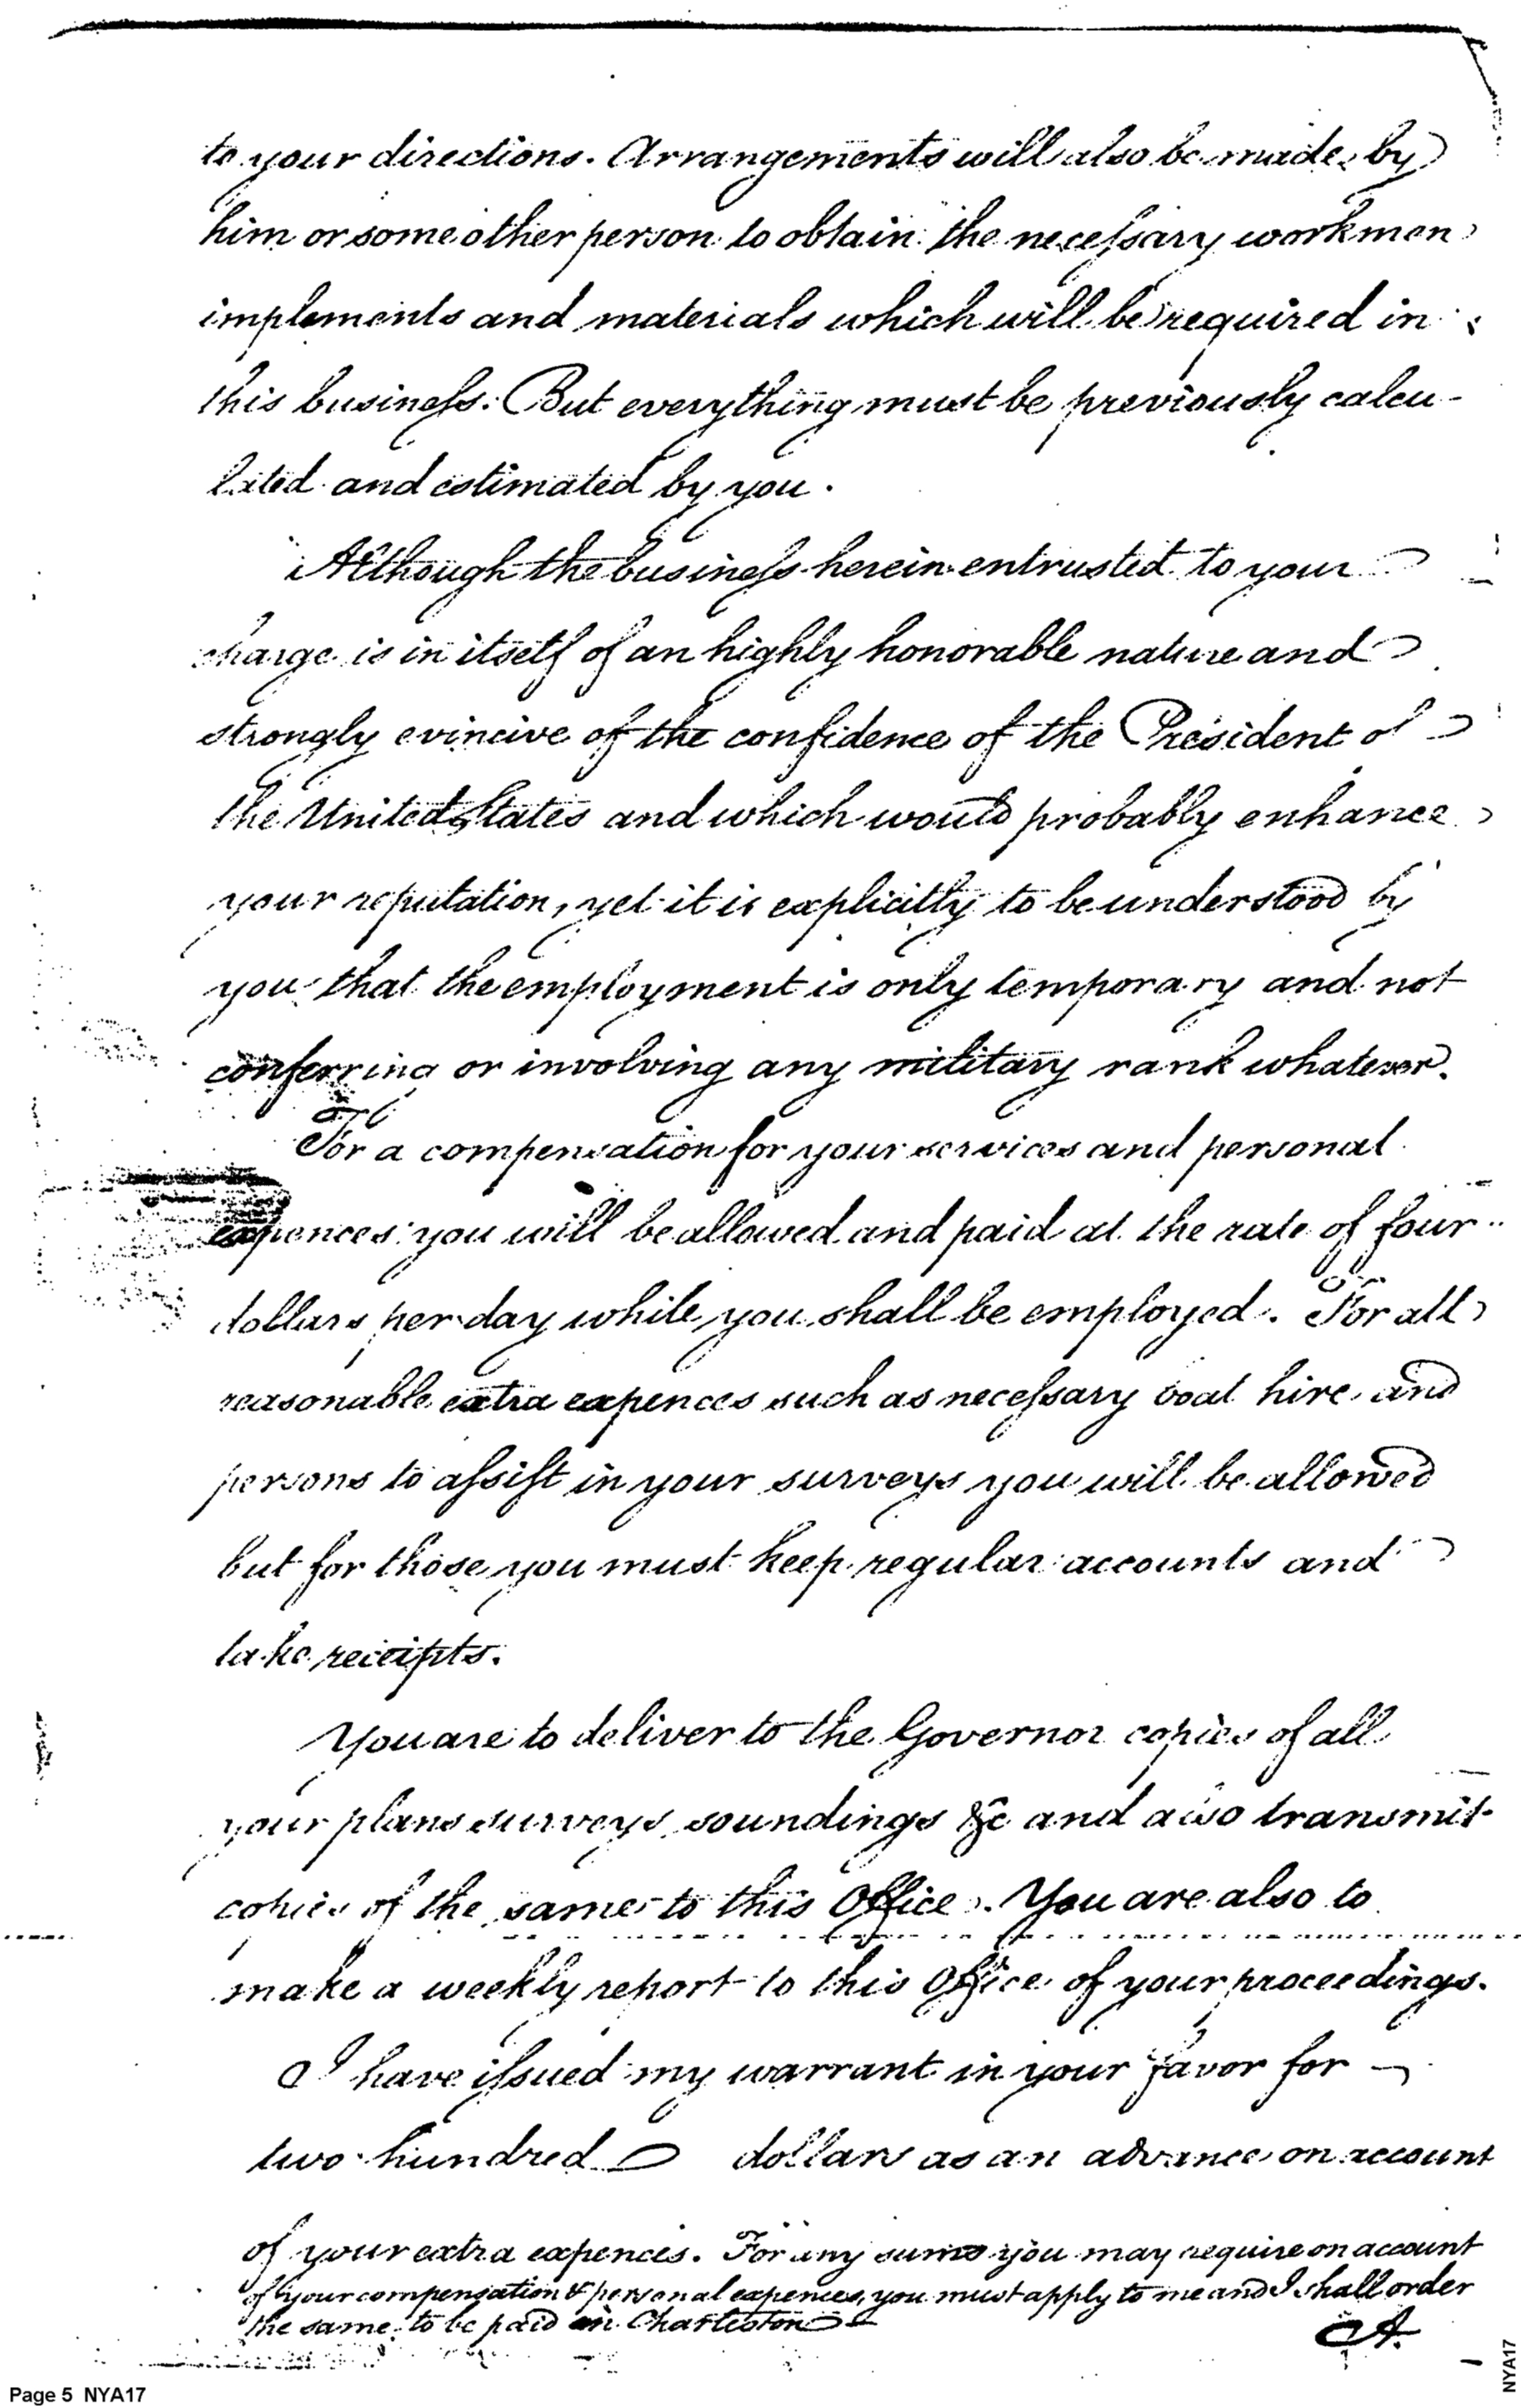 to your directions. Arrangements will also be made by
him or some other person to obtain the necessary workmen
implements and materials which will be required in
this business. But everything must be previously calcu-
lated and estimated by you.
Although the business herein entrusted to your
charge is in itself of an highly honorable nature and
strongly evincive of the confidence of the President of
the United States and which would probably enhance
your reputation, yet it is explicitly to be understood by
you that the employment is only temporary and not
conferring or involving any military rank whatever.
For a compensation for your services and personal
expences you will be allowed and paid at the rate of four
dollars per day while you shall be employed. For all
reasonable extra expences such as necessary boat hire and
persons to assist in your surveys you will be allowed
but for those you must keep regular accounts and
take receipts.
You are to deliver to the Governor copies of all
your plans surveys soundings &c and also transmit
copies of the same to this Office. You are also to
make a weekly report to this Office of your proceedings.
I have issued my warrant in your favor for
two hundred dollars as an advance on account
of your extra expences. For any sums you may require on account
of your compensation & personal expences, you must apply to me and I shall order
the same to be paid in Charleston
A.
Page 5 NYA17
NYA17